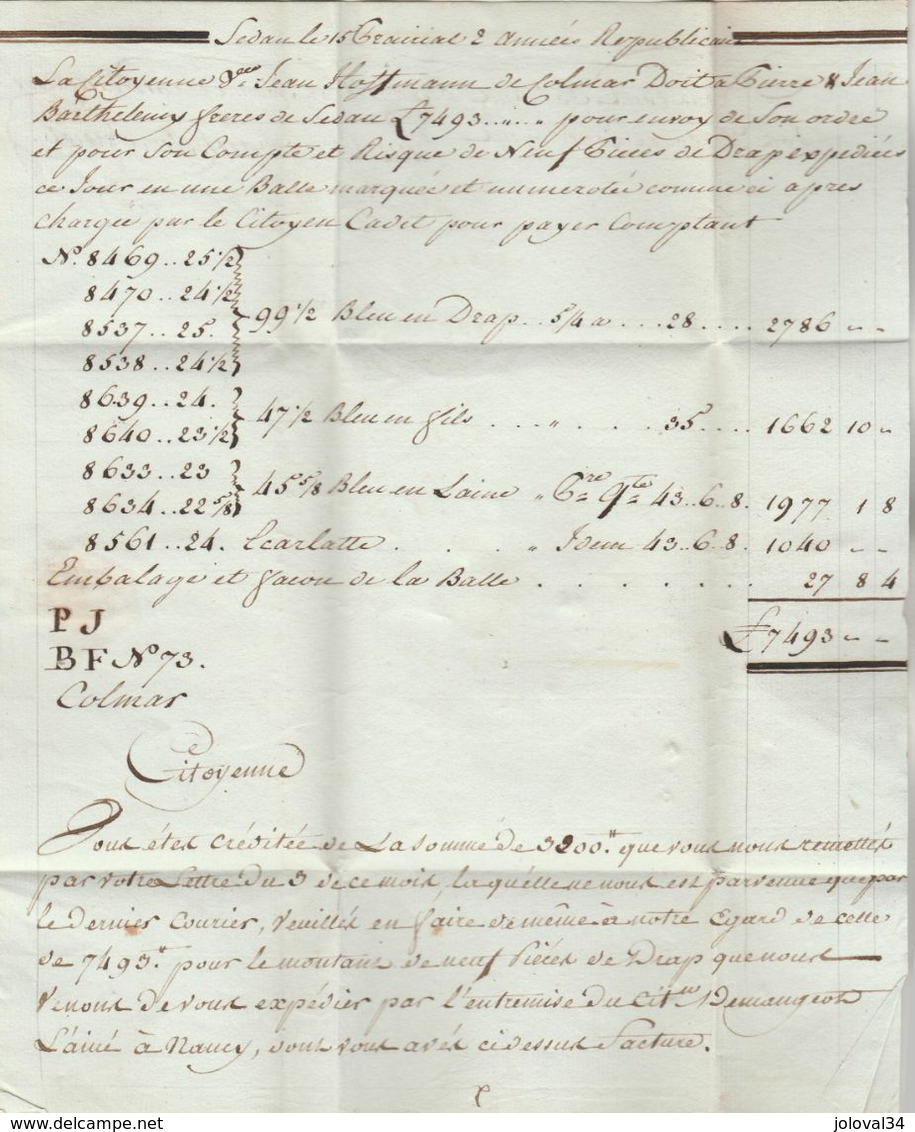 Sedan le 15 Prairial 2 Années Republicaine
La Citoyenne Vve Jean Hoffmann de Colmar Doit a Pierre & Jean
Barthelemy freres de Sedan £ 7493 .. " .. " pour envoy de Son ordre
et pour Son Compte et Risque de Neuf Pieces de Drap expediées
ce Jour en une Balle marquée et numerotée comme ci apres
chargée par le Citoyen Cadet pour payer Comptant
No. 8469 .. 25 1/2
8470 .. 24 1/2
8537 .. 25. 99 1/2 Bleu en Drap .. 5/4 a ... 28 .... 2786 " "
8538 .. 24 1/2
8639 .. 24.
8640 .. 23 1/2 47 1/2 Bleu en fils ... " ..... 35 .... 1662 10 "
8633 .. 23
8634 .. 22 5/8 45 5/8 Bleu en Laine " Pre Qte 43 .. 6 .. 8. 1977 1 8
8561 .. 24. Ecarlatte . . . " Idem 43 .. 6 .. 8. 1040 " "
Embalage et facon de la Balle . . . . . . . 27 8 4
£ 7493 " "
P J
B F No 73.
Colmar
Citoyenne
Vous étes créditée de La somme de 3200.tt que vous nous remettés
par votre Lettre du 3 de ce mois, la quélle ne nous est parvenue que par
le dernier Courier, Veuillés en faire de même à notre Egard de celle
de 7493.tt pour le montant de neuf Piéces de Drap que nous
Venons de vous expédier par l'entremise du Citen Demangeot
L'ainé à Nancy, dont vous avés ci dessus Facture.
delcampe.net
joloval34